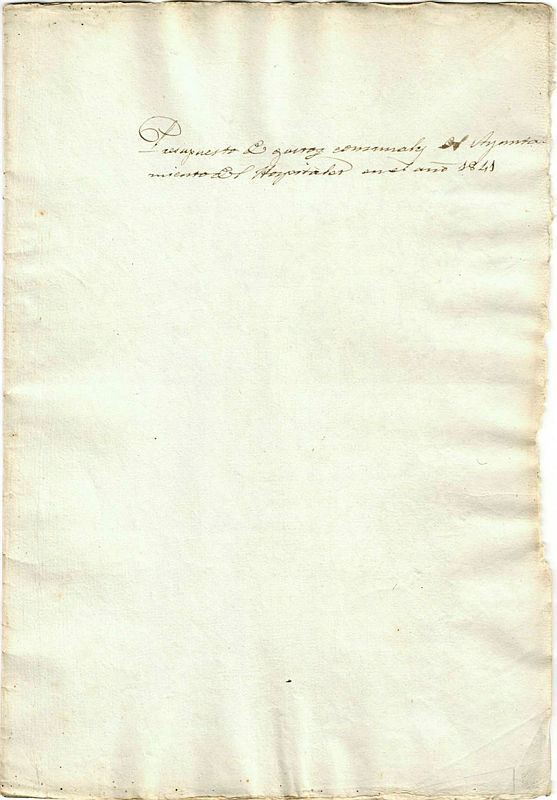 Presupuesto de gastos comunales del Ayunta-
miento del Hospitalet en el año 1841